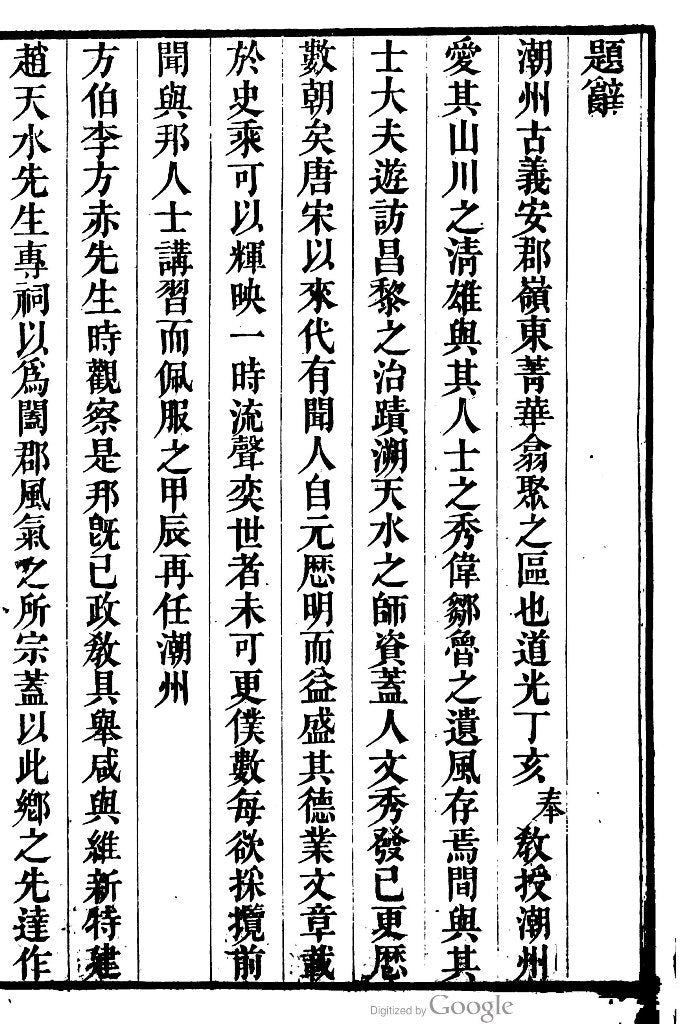 題辭
潮州古義安郡嶺東菁華翕聚之區也道光丁亥奉教授潮州
愛其山川之清雄與其人士之秀偉鄒魯之遺風存焉間與其
士大夫遊訪昌黎之治蹟溯天水之師資蓋人文秀發已更厯
數朝矣唐宋以來代有聞人自元厯明而益盛其德業文章載
於史乘可以輝映一時流聲奕世者未可更僕數每欲採攬前
聞與邦人士講習而佩服之甲辰再任潮州
方伯李方赤先生時觀察是邦旣已政敎具舉咸與維新特建
趙天水先生專祠以爲闔郡風氣之所宗蓋以此鄉之先達作
Digitized by Google